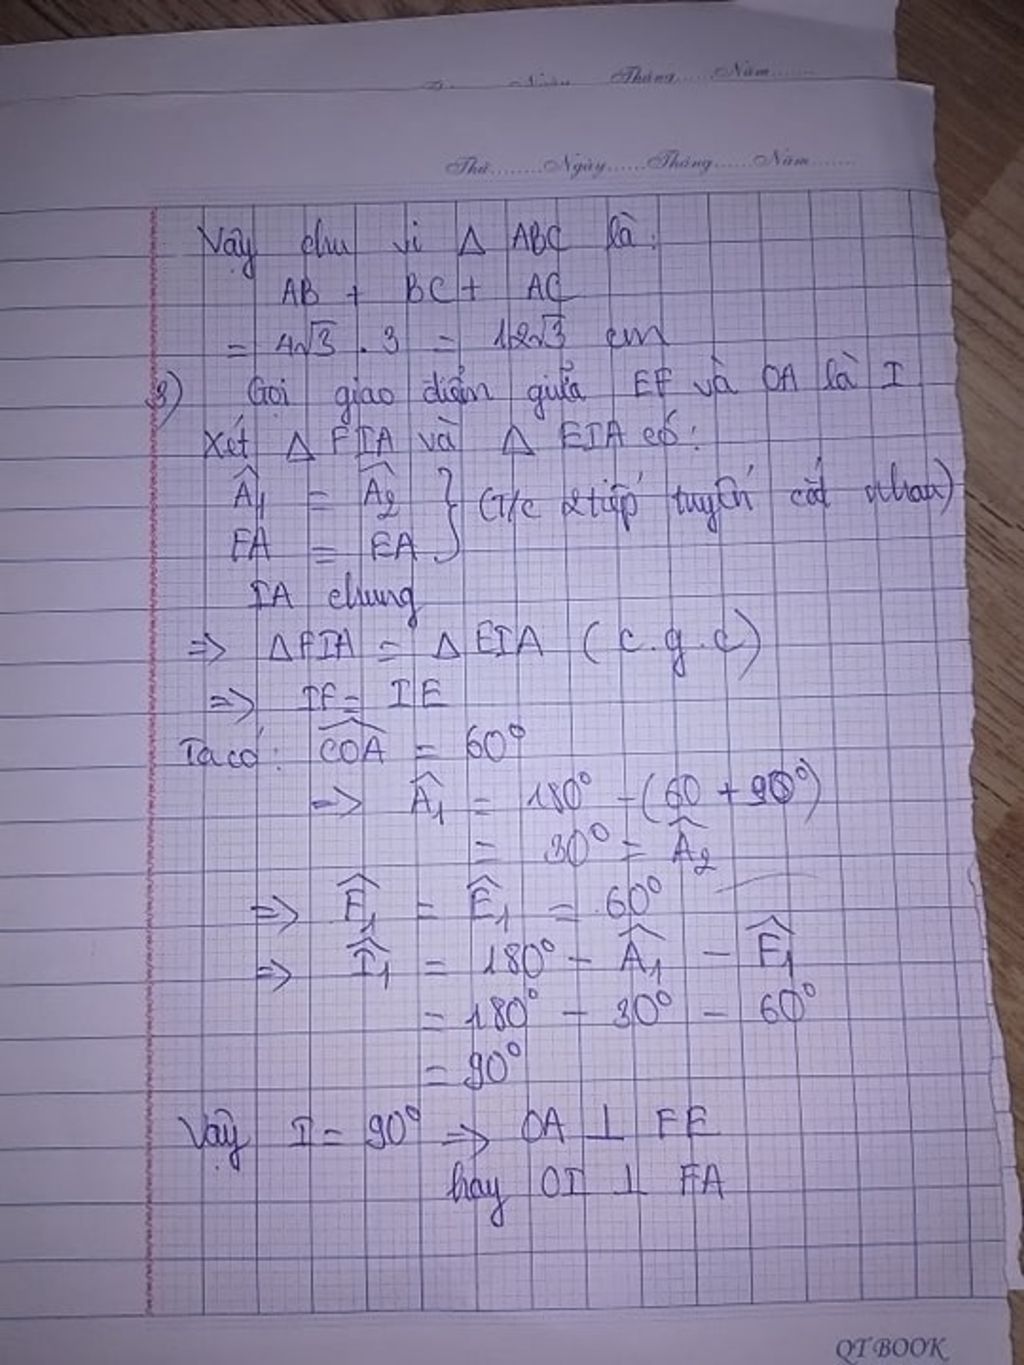 Thứ........Ngày......Tháng......Năm.......
Tháng......Năm.......
Vậy chu vi Δ ABC là:
AB + BC + AC
= 4√3 . 3 = 12√3 cm
3) Gọi giao điểm giữa EF và OA là I
Xét Δ FIA và Δ EIA có:
Â₁ = Â₂ } (T/c 2 tiếp tuyến cắt nhau)
FA = EA
IA chung
=> Δ FIA = Δ EIA (c.g.c)
=> IF = IE
Ta có: CÔA = 60°
=> Â₁ = 180° - (60 + 90°)
= 30° = Â₂
=> F̂₁ = Ê₁ = 60°
=> Î₁ = 180° - Â₁ - F̂₁
= 180° - 30° - 60°
= 90°
Vậy I = 90° => OA ⊥ FE
hay OI ⊥ FA
QT BOOK